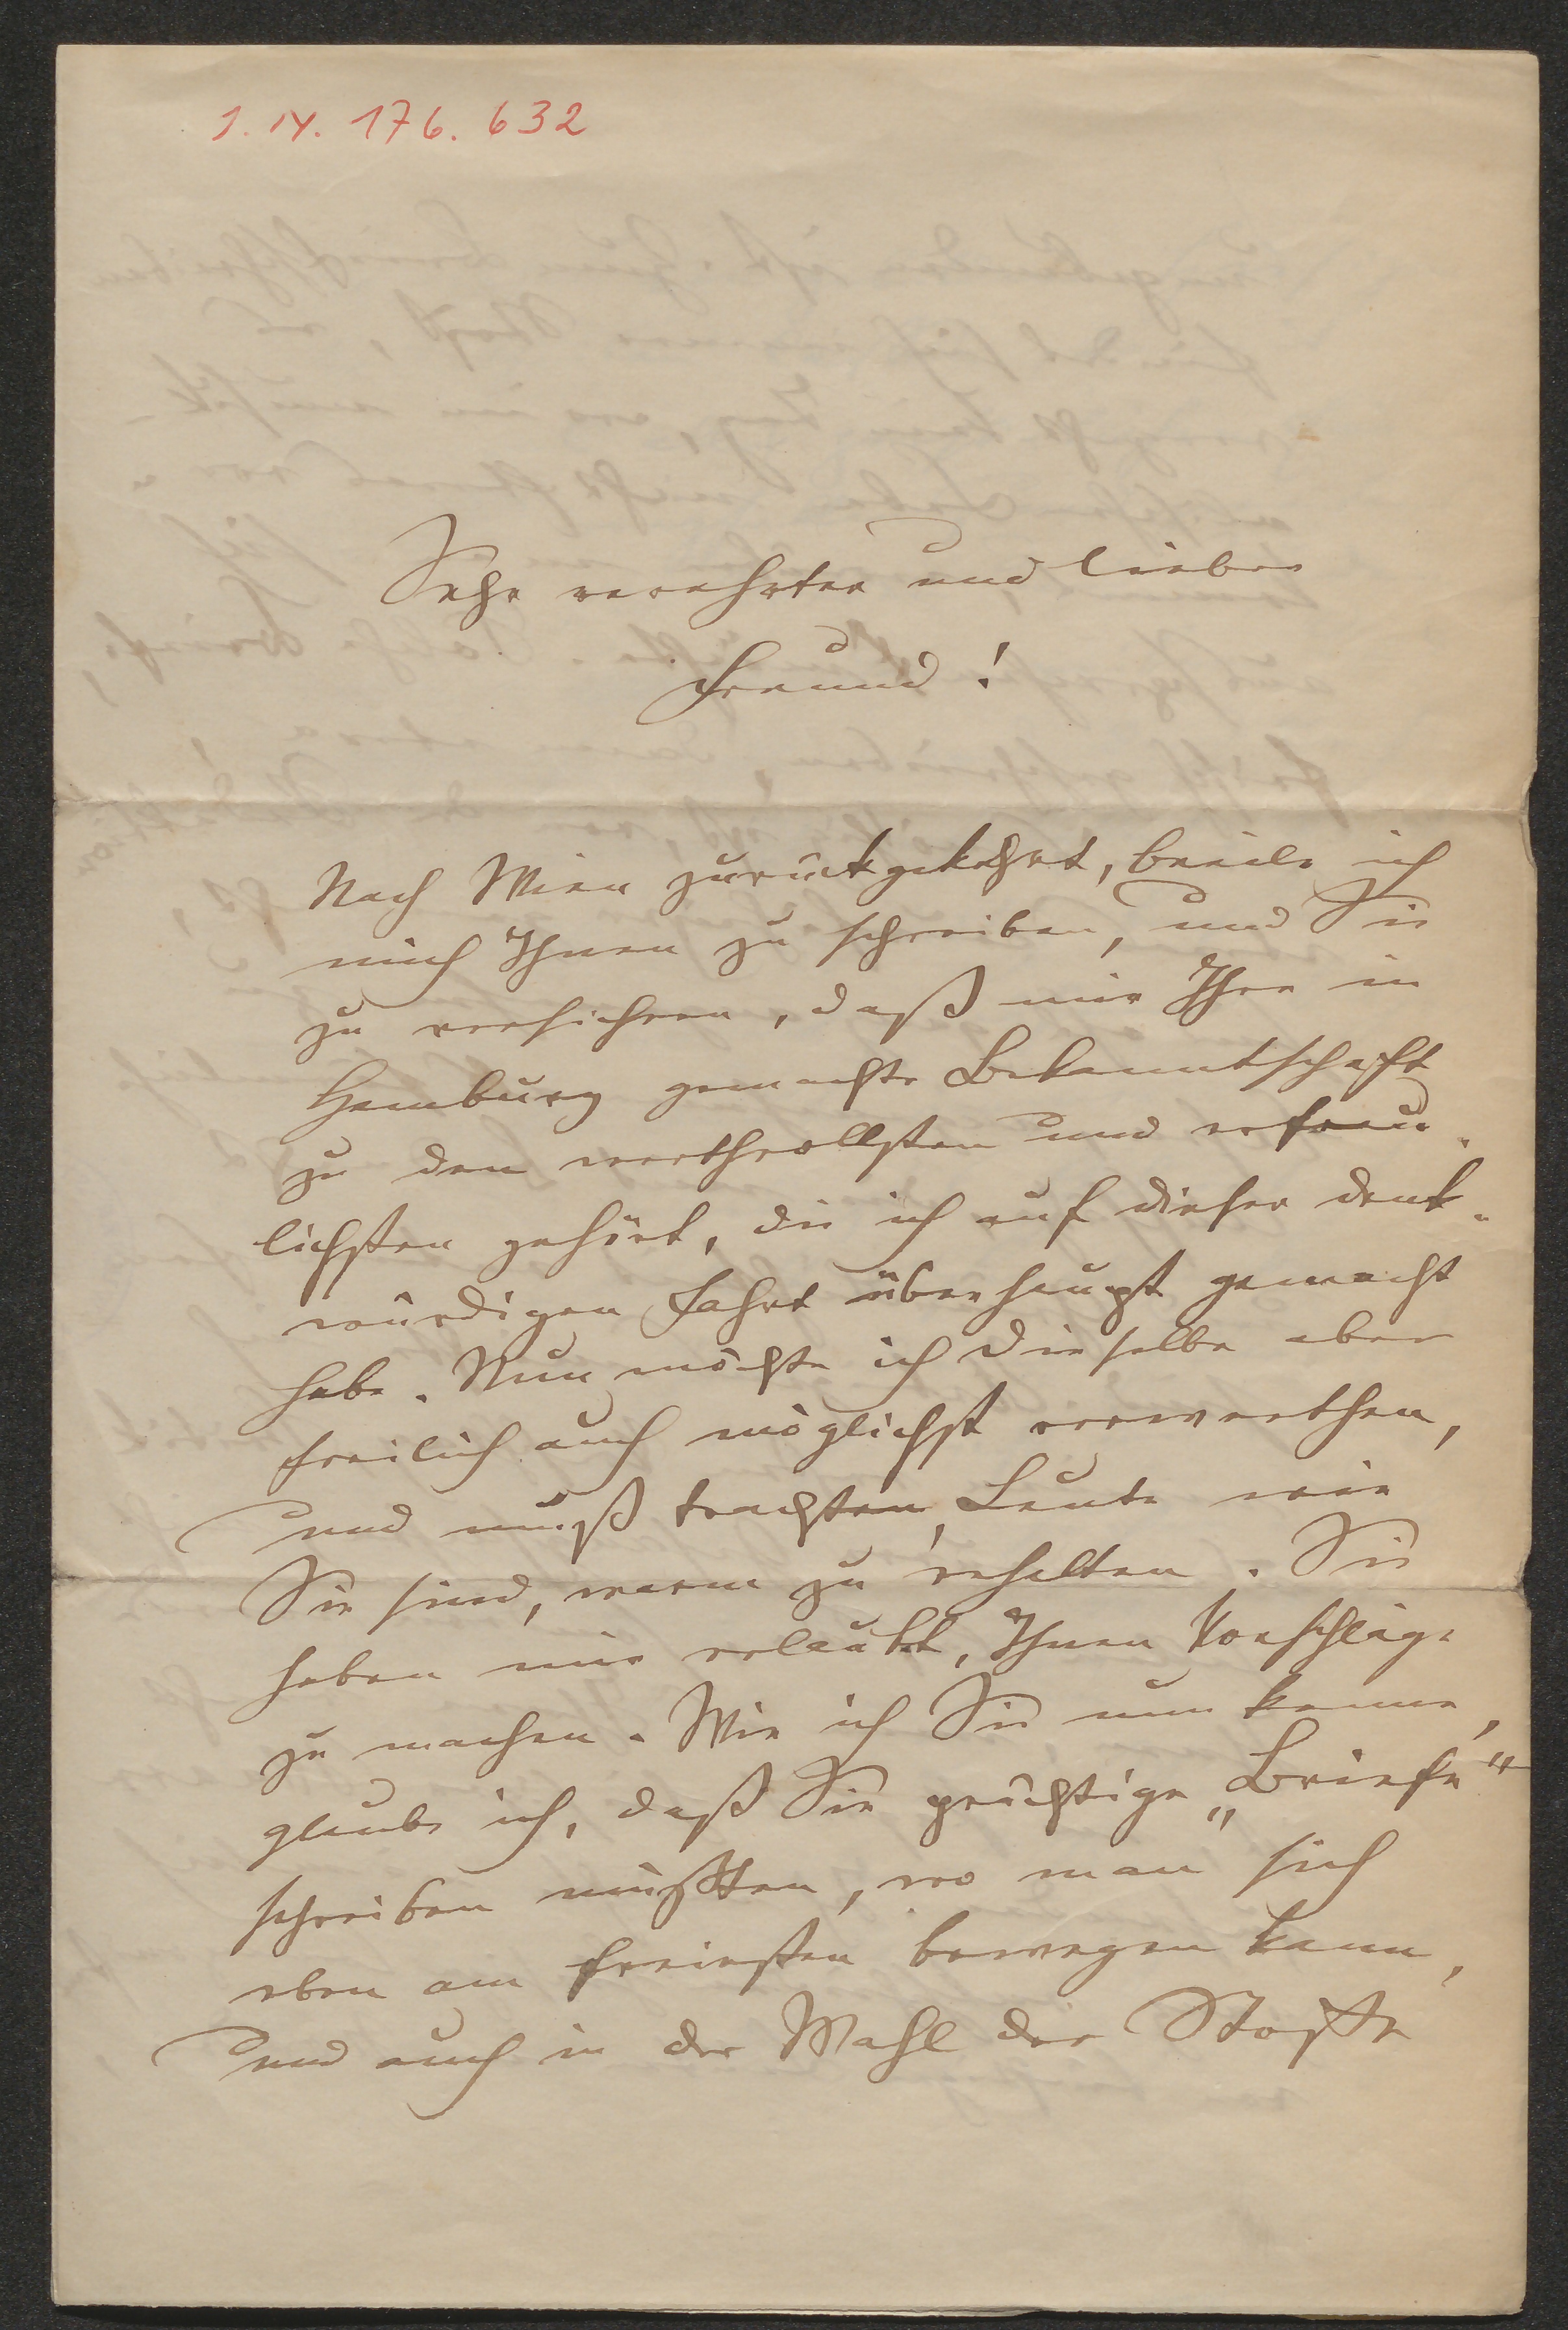 J. N. 176. 632
Sehr verehrter und lieber
Freund!
Nach Wien zurückgekehrt, beeile ich
mich Ihnen zu schreiben, und Sie
zu versichern, daß mir Ihre in
Hamburg gemachte Bekanntschaft
zu den werthvollsten und erfreu-
lichsten gehört, die ich auf dieser denk-
würdigen Fahrt überhaupt gemacht
habe. Nun möchte ich dieselbe aber
freilich auch möglichst verwerthen,
und muß trachten, Leute wie
Sie sind, warm zu erhalten. Sie
haben mir erlaubt, Ihnen Vorschläge
zu machen. Wie ich Sie nun kenne,
glaube ich, daß Sie prächtige „Briefe"
schreiben müßten, wo man sich
eben am freiesten bewegen kann,
und auch in der Wahl der Stoffe